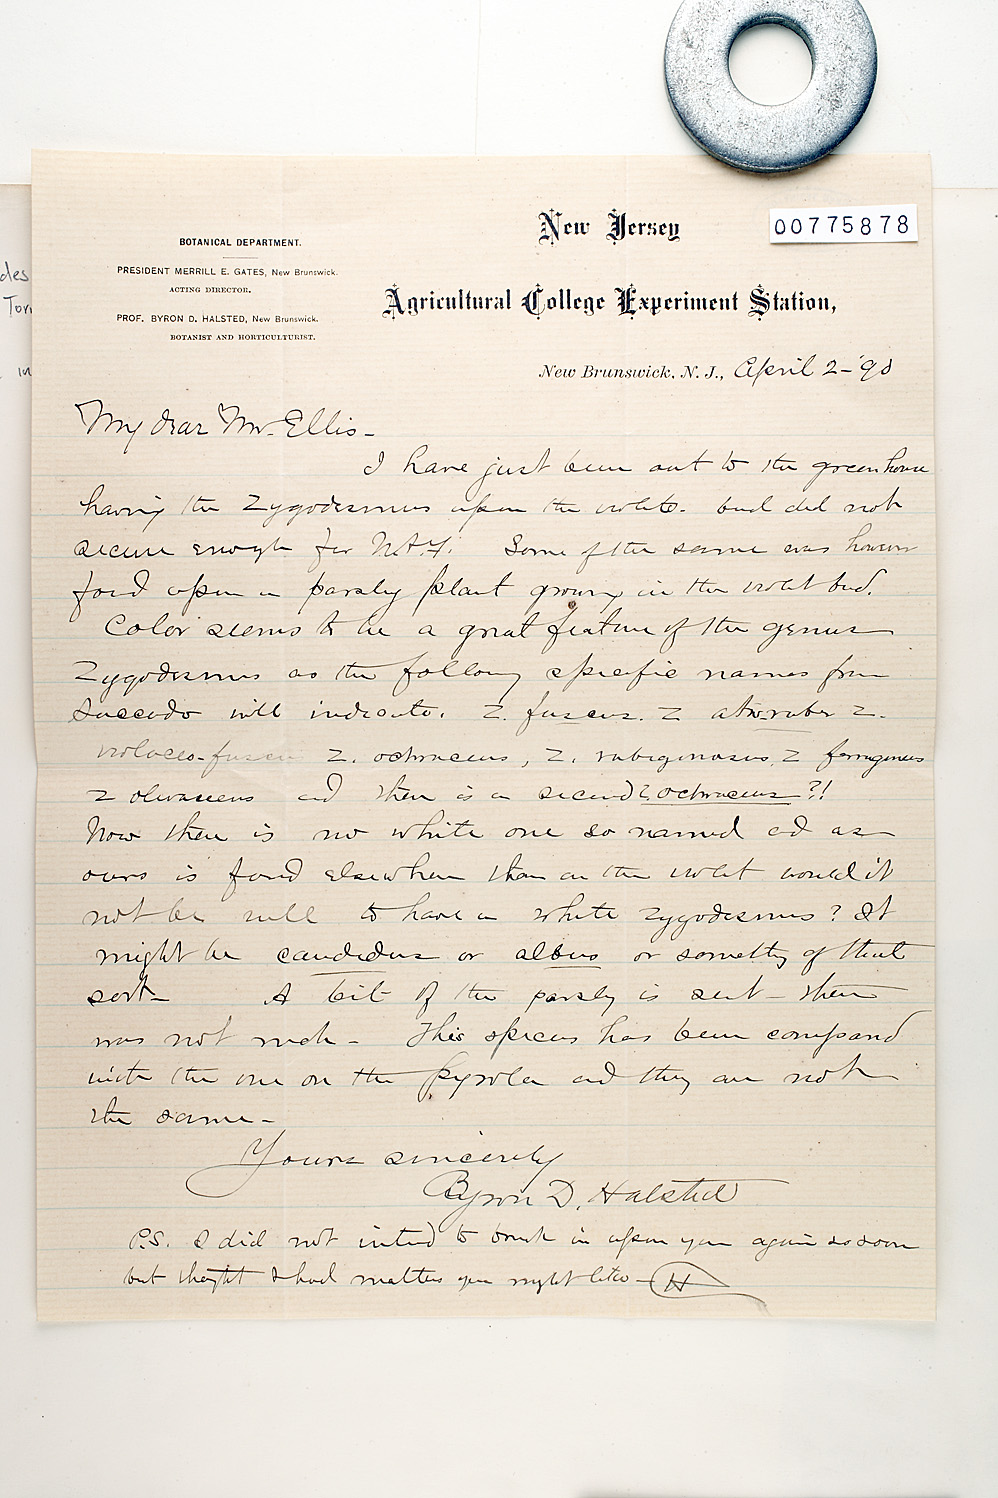 des
Torr
in
00775878
BOTANICAL DEPARTMENT.
PRESIDENT MERRILL E. GATES, New Brunswick.
ACTING DIRECTOR.
PROF. BYRON D. HALSTED, New Brunswick.
BOTANIST AND HORTICULTURIST.
New Jersey
Agricultural College Experiment Station,
New Brunswick, N. J., April 2-'90
My dear Mr. Ellis-
I have just been out to the greenhouse
having the Zygodesmus upon the violets. but did not
secure enough for N.A.F. Some of the same was however
found upon a parsley plant growing in the violet bed.
Color seems to be a great feature of the genus
Zygodesmus as the following specific names from
Saccardo will indicate. Z. fuscus. Z atroruber Z.
violaceo-fuscus Z. ochraceus, Z. rubiginosus, Z ferrugineus
Z olivaceus and then is a second Z ochraceus ?!
Now there is no white one so named and as
ours is found elsewhere than on the violet would it
not be well to have a white Zygodesmus? It
might be candidus or albus or something of that
sort- A bit of the parsley is sent - there
was not much - This species has been compared
with the one on the pyrola and they are not
the same-
Yours sincerely
Byron D. Halsted
P.S. I did not intend to break in upon you again so soon
but thought I had matters you might like - H